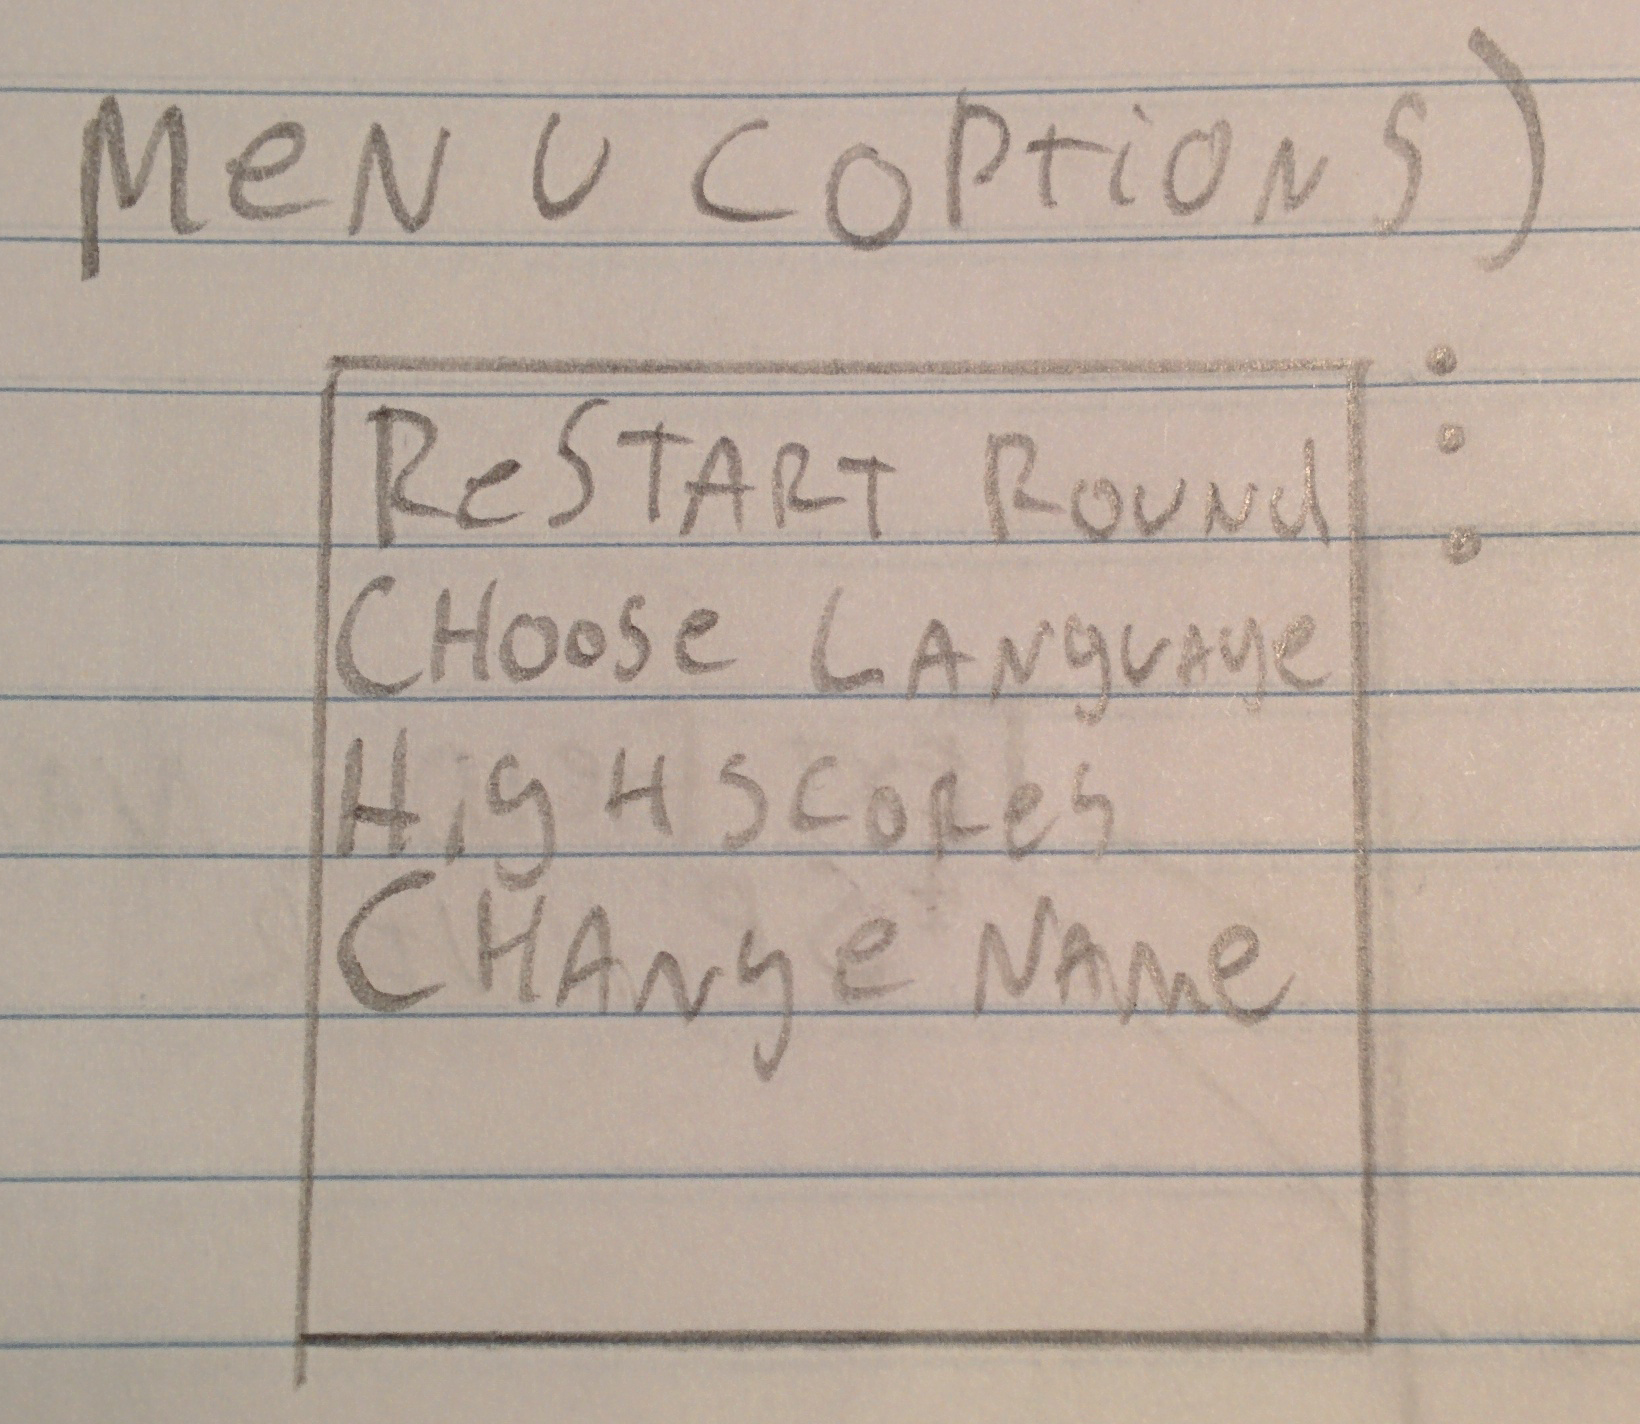 MeNU (OPtiONS)
ReSTART ROUNd
CHOOSe LANgUAge
HigH SCOReS
CHANge NAMe